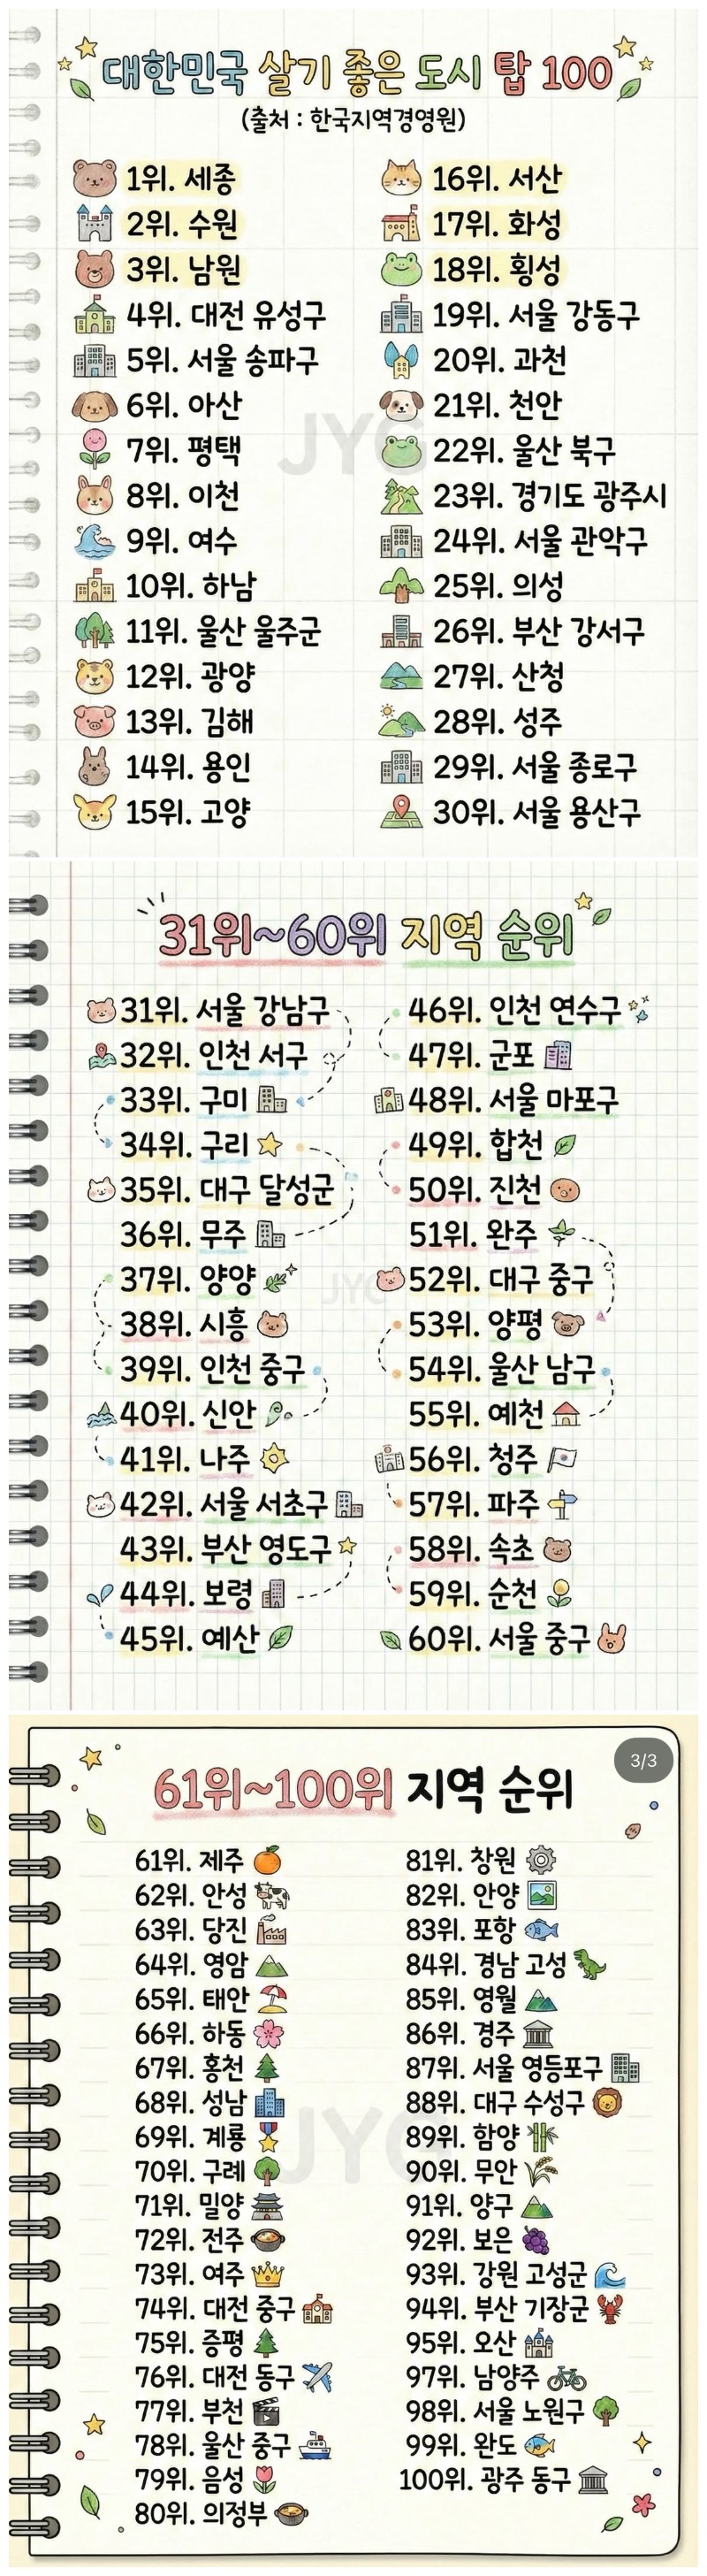 대한민국 살기 좋은 도시 탑 100
(출처 : 한국지역경영원)
1위. 세종
2위. 수원
3위. 남원
4위. 대전 유성구
5위. 서울 송파구
6위. 아산
7위. 평택
8위. 이천
9위. 여수
10위. 하남
11위. 울산 울주군
12위. 광양
13위. 김해
14위. 용인
15위. 고양
16위. 서산
17위. 화성
18위. 횡성
19위. 서울 강동구
20위. 과천
21위. 천안
22위. 울산 북구
23위. 경기도 광주시
24위. 서울 관악구
25위. 의성
26위. 부산 강서구
27위. 산청
28위. 성주
29위. 서울 종로구
30위. 서울 용산구
JYG
31위~60위 지역 순위
31위. 서울 강남구
32위. 인천 서구
33위. 구미
34위. 구리
35위. 대구 달성군
36위. 무주
37위. 양양
38위. 시흥
39위. 인천 중구
40위. 신안
41위. 나주
42위. 서울 서초구
43위. 부산 영도구
44위. 보령
45위. 예산
46위. 인천 연수구
47위. 군포
48위. 서울 마포구
49위. 합천
50위. 진천
51위. 완주
52위. 대구 중구
53위. 양평
54위. 울산 남구
55위. 예천
56위. 청주
57위. 파주
58위. 속초
59위. 순천
60위. 서울 중구
JYG
3/3
61위~100위 지역 순위
61위. 제주
62위. 안성
63위. 당진
64위. 영암
65위. 태안
66위. 하동
67위. 홍천
68위. 성남
69위. 계룡
70위. 구례
71위. 밀양
72위. 전주
73위. 여주
74위. 대전 중구
75위. 증평
76위. 대전 동구
77위. 부천
78위. 울산 중구
79위. 음성
80위. 의정부
81위. 창원
82위. 안양
83위. 포항
84위. 경남 고성
85위. 영월
86위. 경주
87위. 서울 영등포구
88위. 대구 수성구
89위. 함양
90위. 무안
91위. 양구
92위. 보은
93위. 강원 고성군
94위. 부산 기장군
95위. 오산
97위. 남양주
98위. 서울 노원구
99위. 완도
100위. 광주 동구
JYG